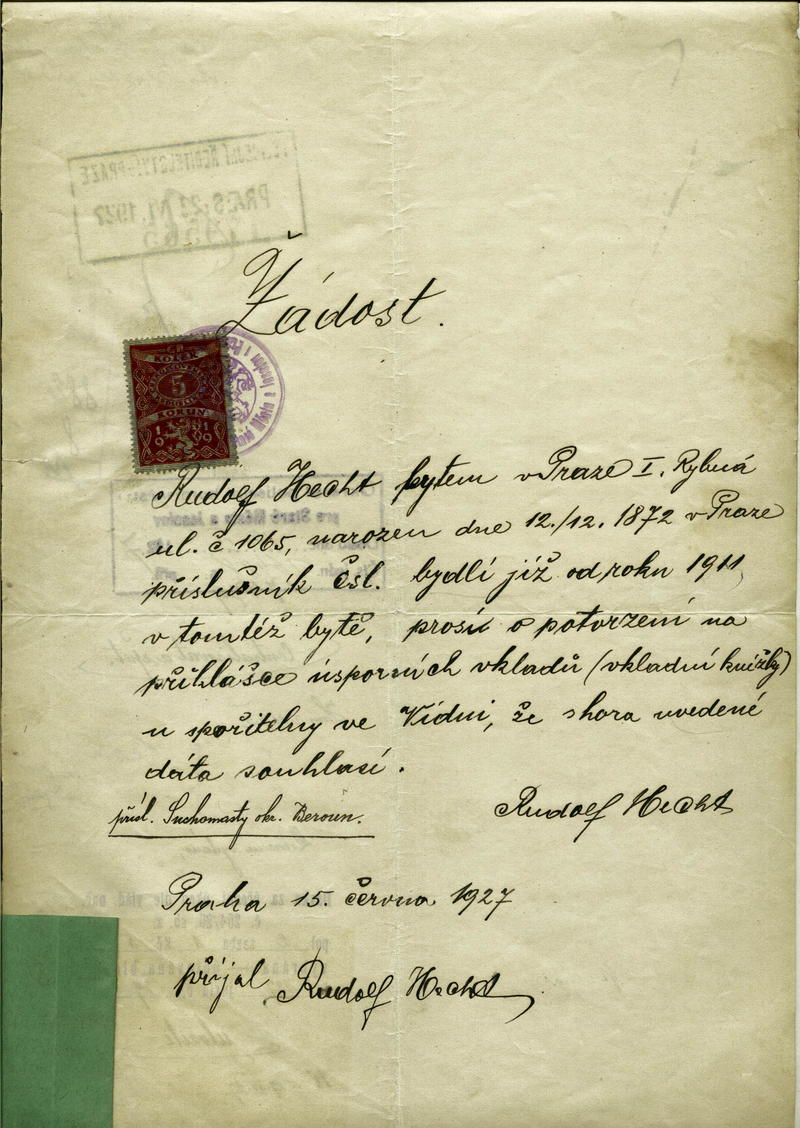 Žádost.
KOLEK
5
KORUN
1919
Rudolf Hecht bytem v Praze I. Rybná
ul. č 1065, narozen dne 12./12. 1872 v Praze
příslušník čsl. bydlí již od roku 1911
v tomtéž bytě, prosí o potvrzení na
přihlášce úsporních vkladů (vkladní knížky)
u spořitelny ve Vídni, že shora uvedené
dáta souhlasí.
přísl. Suchomasty okr. Beroun.
Rudolf Hecht
Praha 15. června 1927
přijal Rudolf Hecht